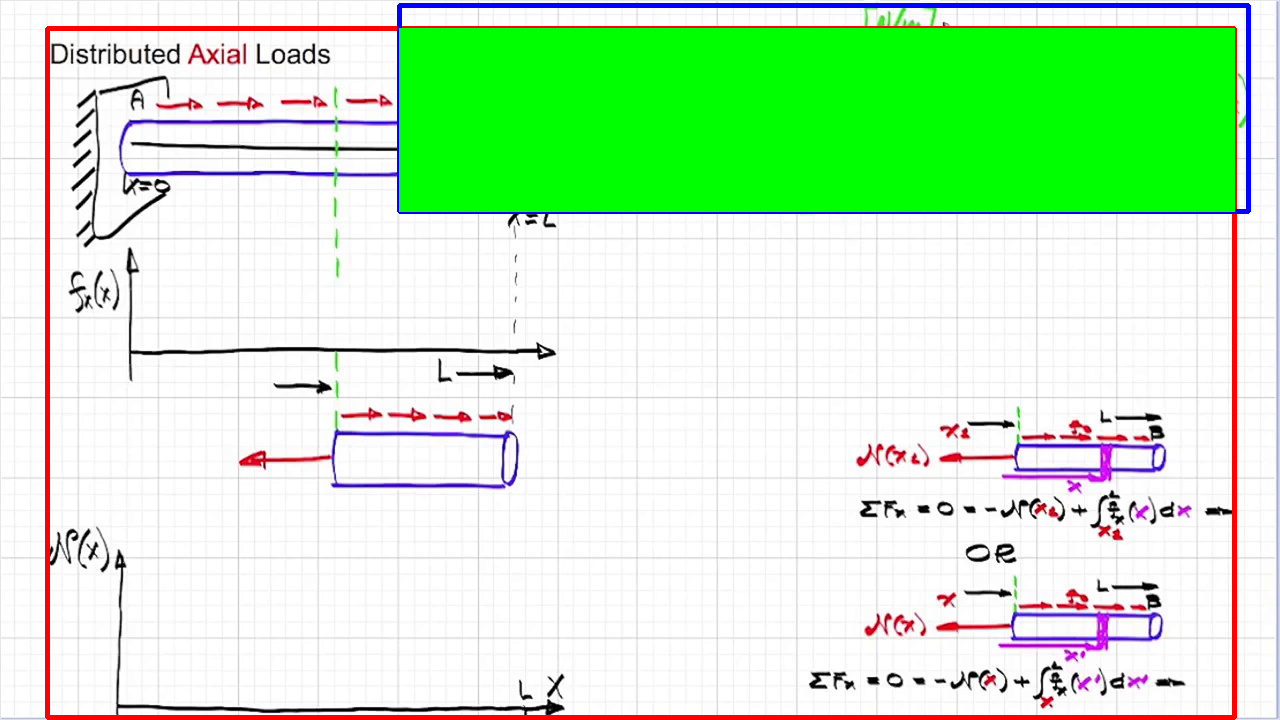 Distributed Axial Loads
A
x=0
x=L
fx(x)
L
N(x)
L X
x₁ L B
N(x₁)
x
ΣFx = 0 = -N(x₁) + ∫ fx(x)dx
OR
x L B
N(x)
x'
ΣFx = 0 = -N(x) + ∫ fx(x')dx'